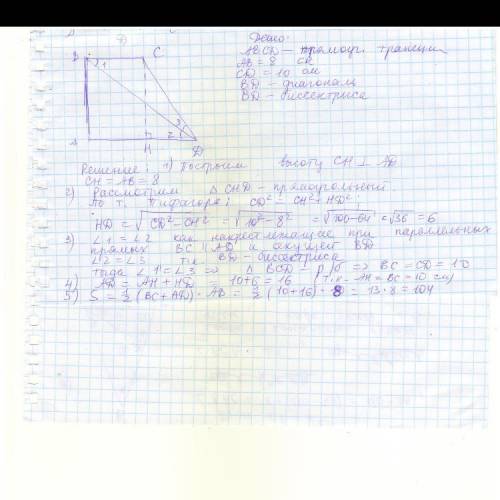 Дано:
ABCD – прямоуг. трапеция
AB = 8 см
CD = 10 см
BD – диагональ
BD – биссектриса
B
C
1
3
2
A
H
D
Решение: 1) Построим высоту CH ⊥ AD
CH = AB = 8
2) Рассмотрим △ CHD – прямоугольный.
По т. Пифагора: CD² = CH² + HD²
HD = √CD² – CH² = √10² – 8² = √100 – 64 = √36 = 6
3) ∠1 = ∠2 как накрестлежащие при параллельных
прямых BC || AD и секущей BD
∠2 = ∠3 т.к. BD – биссектриса
тогда ∠1 = ∠3 => △ BCD – р/б => BC = CD = 10
4) AD = AH + HD 10+6 = 16 (т.к – AH = BC = 10 см)
5) S – ½ (BC + AD) · AB = ½ (10 + 16) · 8 = 13 · 8 = 104